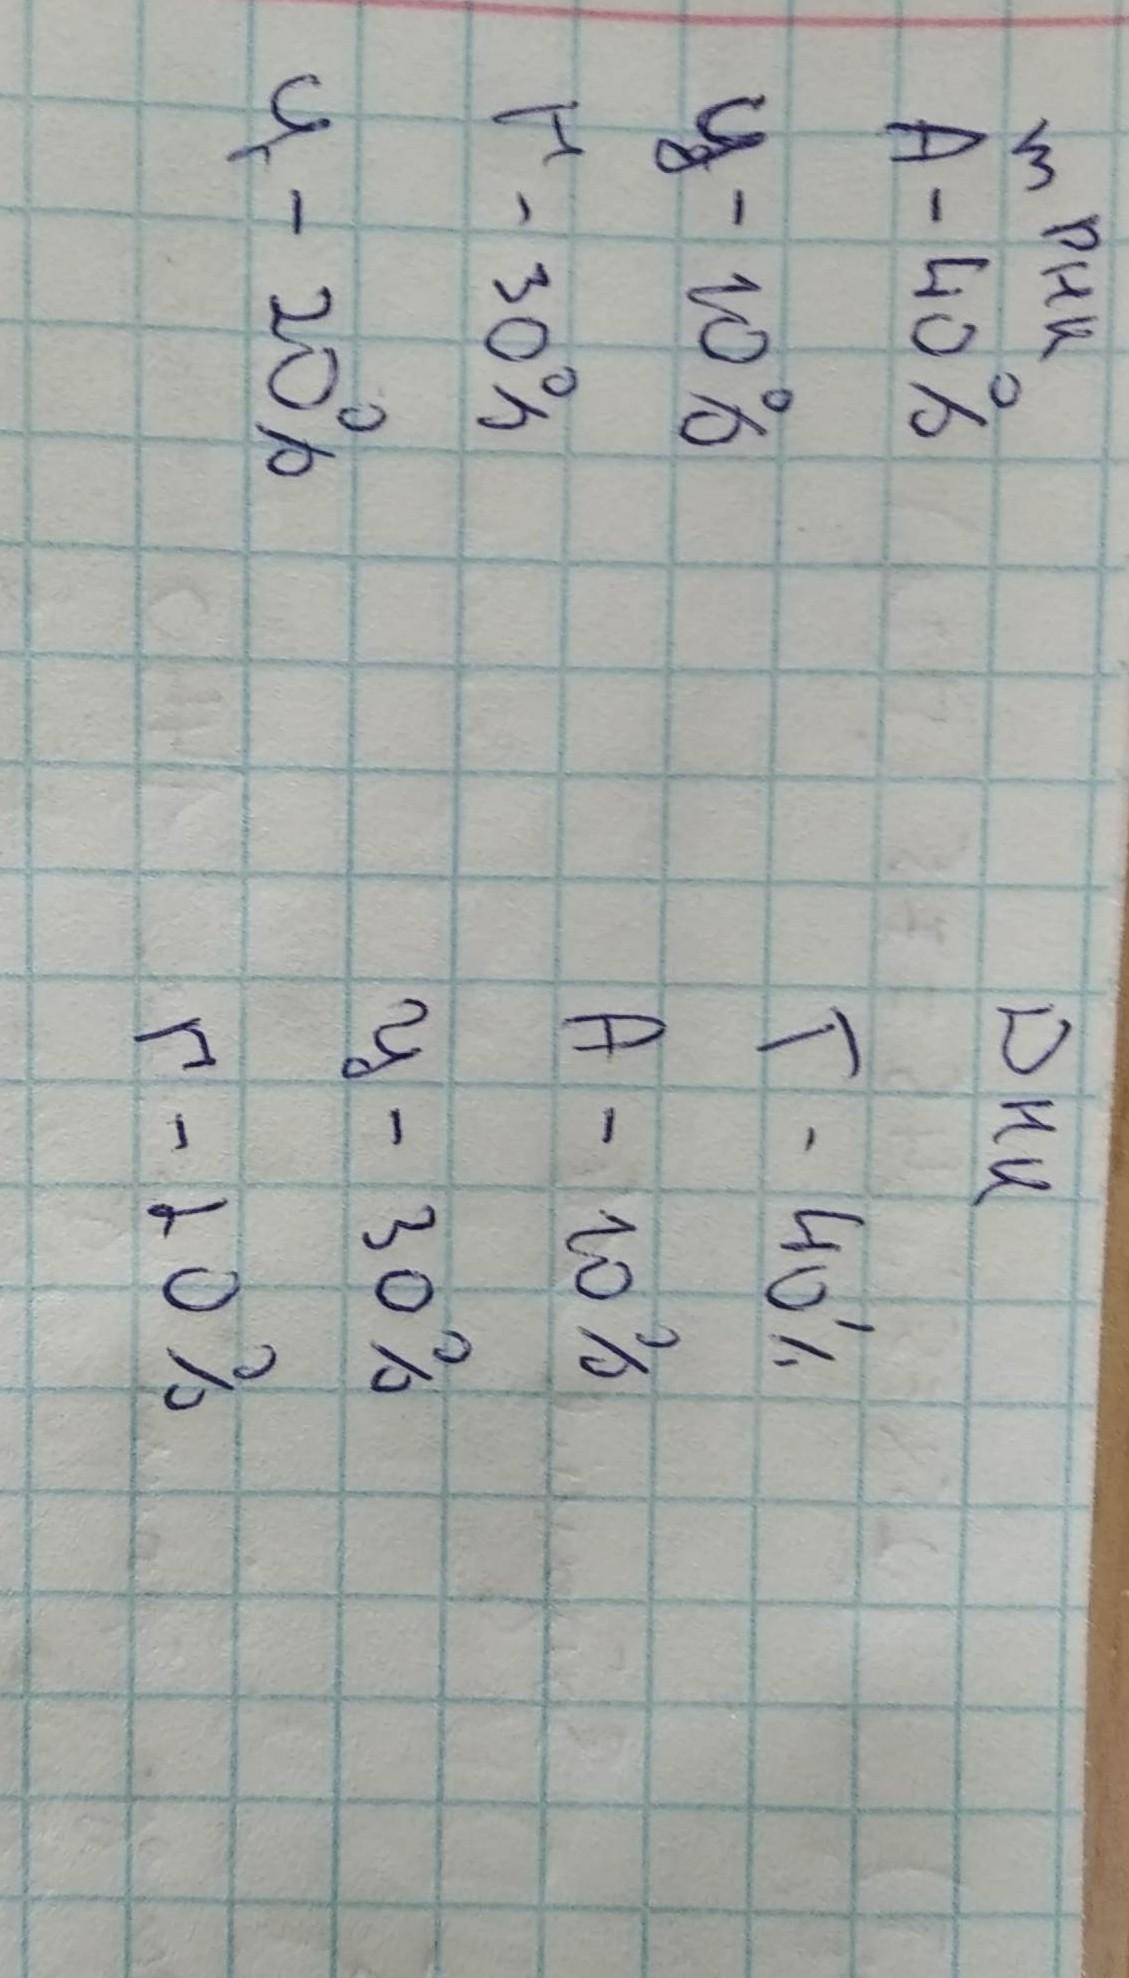 m РНК
А - 40%
У - 10%
Г - 30%
Ц - 20%
DНК
Т - 40%
А - 10%
Ц - 30%
Г - 20%